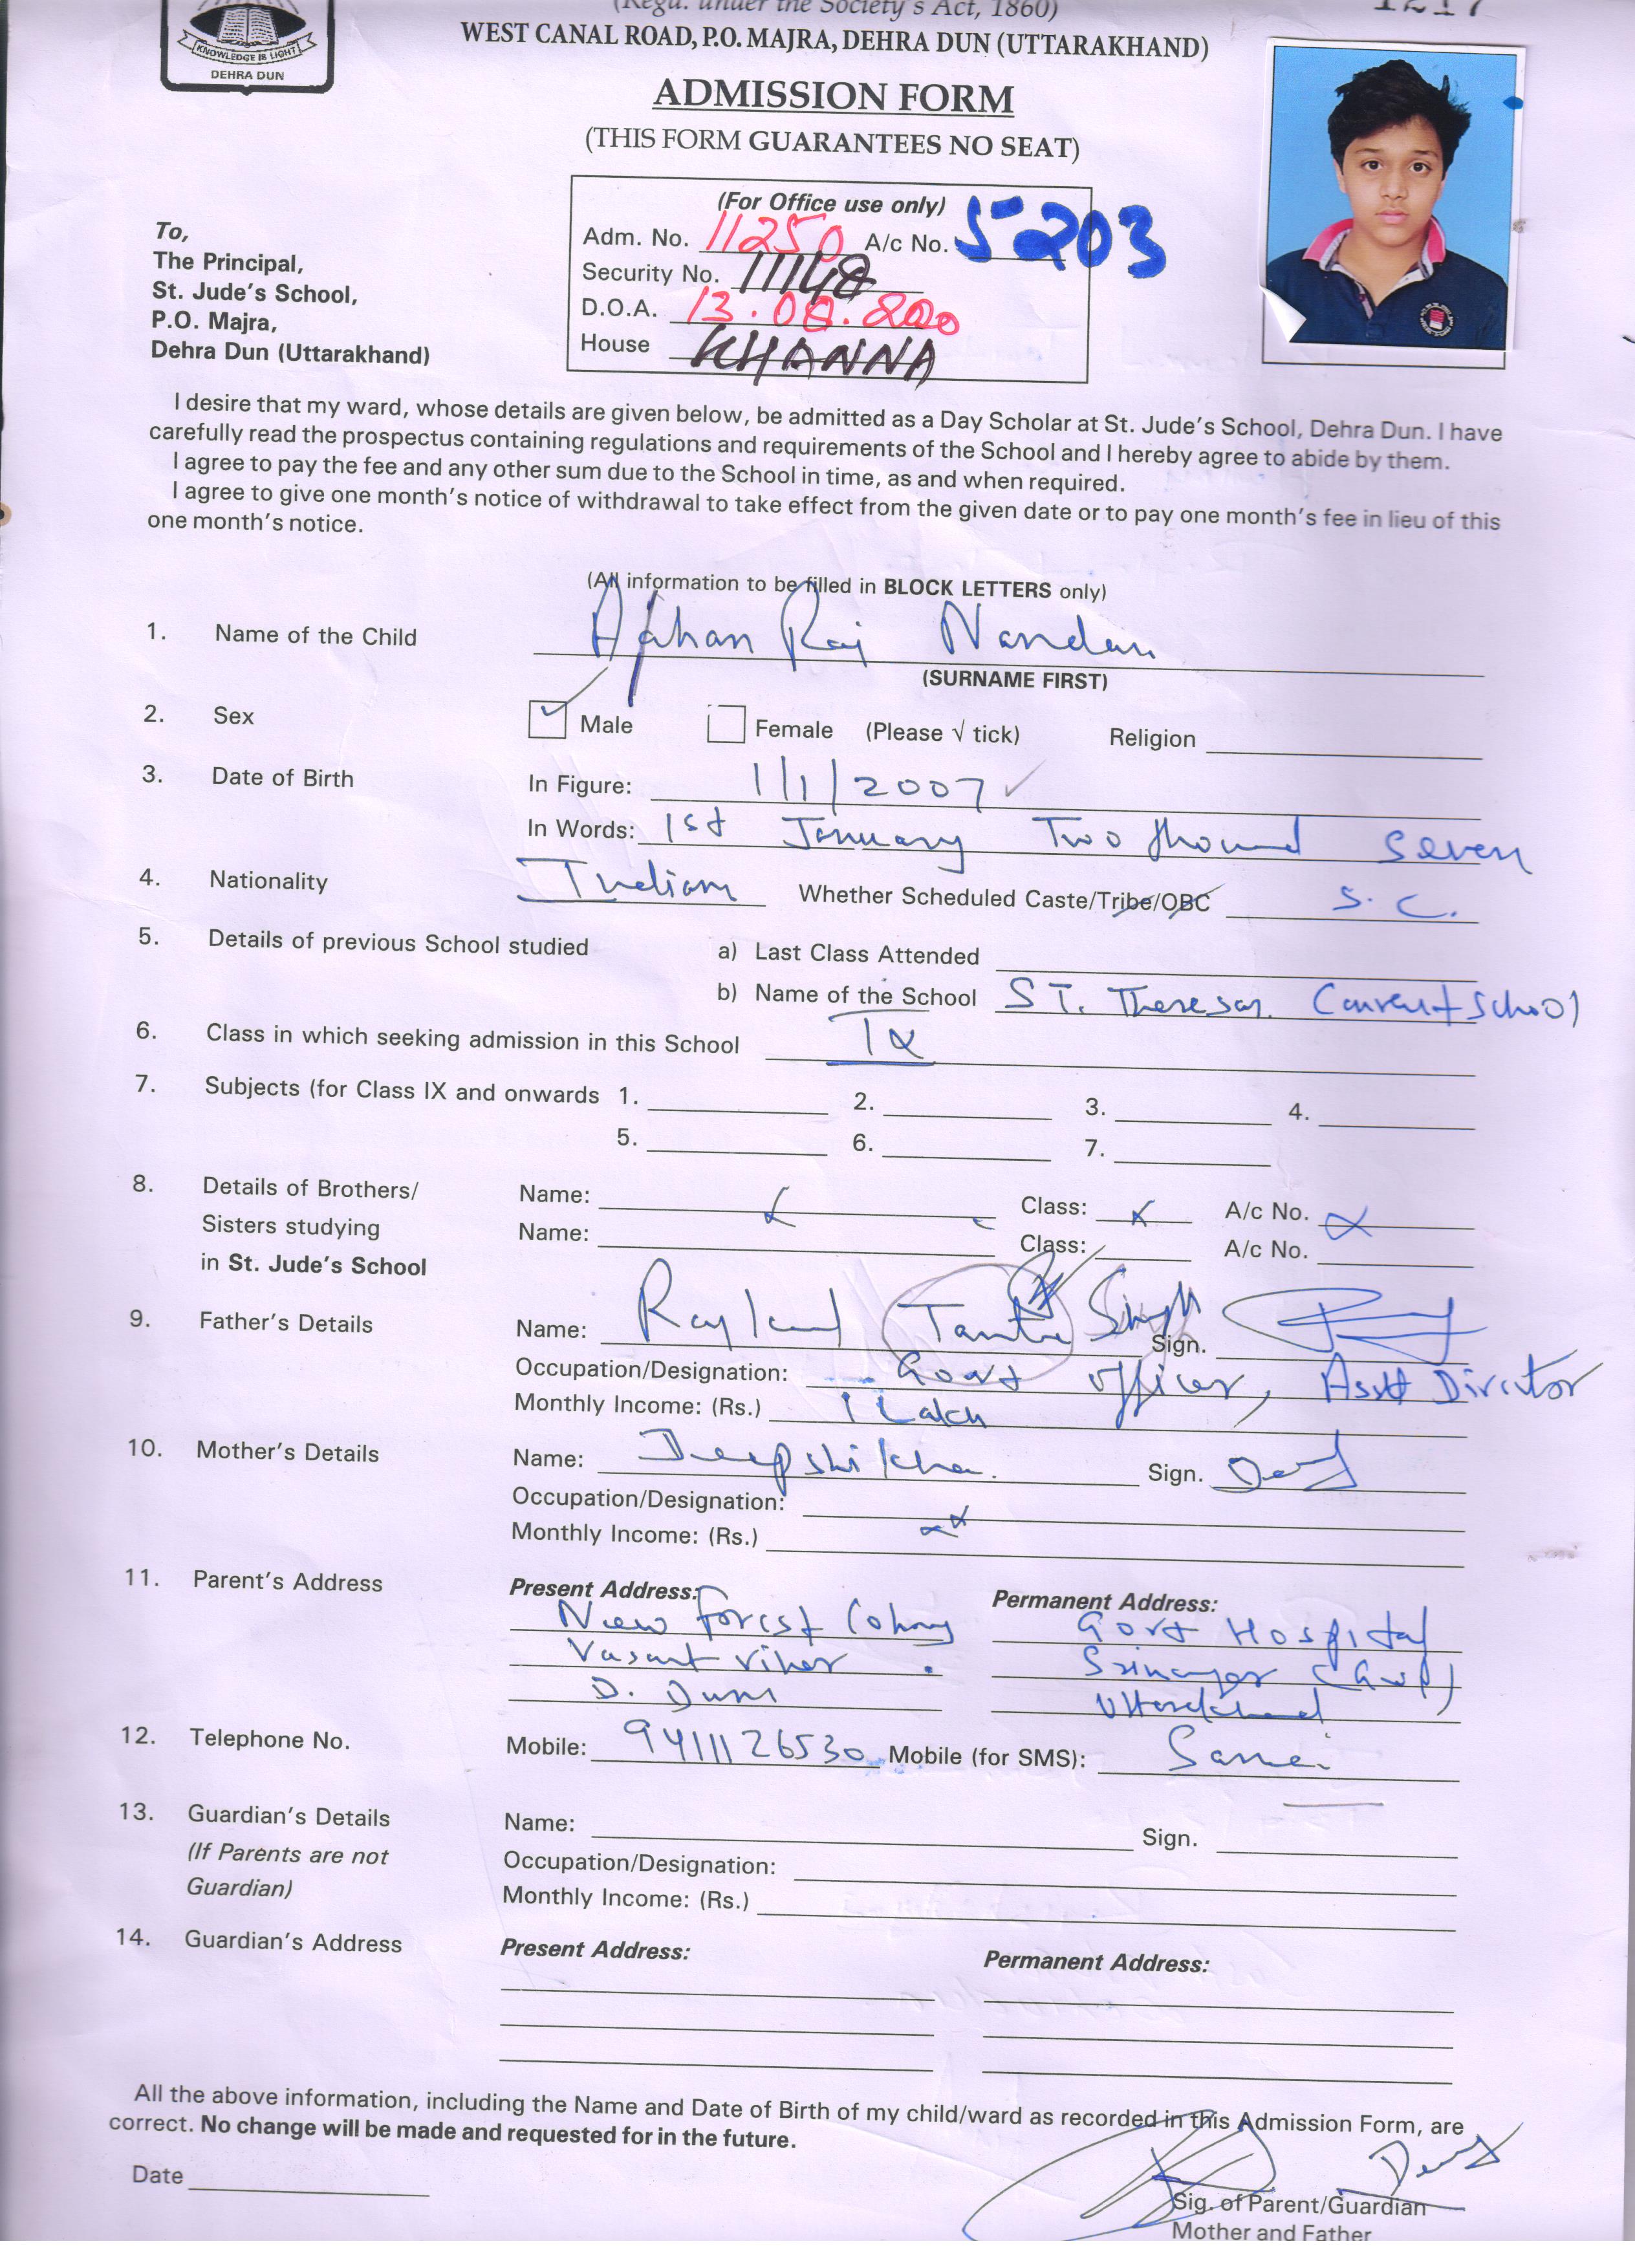 (Regd. under the Society's Act, 1860)
1217
KNOWLEDGE IS LIGHT
DEHRA DUN
WEST CANAL ROAD, P.O. MAJRA, DEHRA DUN (UTTARAKHAND)
ADMISSION FORM
(THIS FORM GUARANTEES NO SEAT)
(For Office use only)
Adm. No. 11250 A/c No. 5203
Security No. 11148
D.O.A. 13.08.2020
House KHANNA
To,
The Principal,
St. Jude's School,
P.O. Majra,
Dehra Dun (Uttarakhand)
I desire that my ward, whose details are given below, be admitted as a Day Scholar at St. Jude's School, Dehra Dun. I have
carefully read the prospectus containing regulations and requirements of the School and I hereby agree to abide by them.
I agree to pay the fee and any other sum due to the School in time, as and when required.
I agree to give one month's notice of withdrawal to take effect from the given date or to pay one month's fee in lieu of this
one month's notice.
(All information to be filled in BLOCK LETTERS only)
1. Name of the Child Raj Nandan
(SURNAME FIRST)
2. Sex Male Female (Please √ tick) Religion
3. Date of Birth In Figure: 1/1/2007
In Words: 1st January Two Seven
4. Nationality Indian Whether Scheduled Caste/Tribe/OBC S.C.
5. Details of previous School studied a) Last Class Attended
b) Name of the School ST. Theresas Convent School
6. Class in which seeking admission in this School IX
7. Subjects (for Class IX and onwards 1. 2. 3. 4.
5. 6. 7.
8. Details of Brothers/ Name: Class: x A/c No. x
Sisters studying Name: Class: A/c No.
in St. Jude's School
9. Father's Details Name: Singh Sign.
Occupation/Designation: Govt Officer, Asstt Director
Monthly Income: (Rs.) 1 Lakh
10. Mother's Details Name: Deepshikha Sign.
Occupation/Designation:
Monthly Income: (Rs.)
11. Parent's Address Present Address: Permanent Address:
New Forest Colony Govt Hospital
Vasant Vihar Srinagar
D. Dun Uttarakhand
12. Telephone No. Mobile: 9411126530 Mobile (for SMS): Same
13. Guardian's Details Name: Sign.
(If Parents are not Occupation/Designation:
Guardian) Monthly Income: (Rs.)
14. Guardian's Address Present Address: Permanent Address:
All the above information, including the Name and Date of Birth of my child/ward as recorded in this Admission Form, are
correct. No change will be made and requested for in the future.
Date
Sig. of Parent/Guardian
Mother and Father